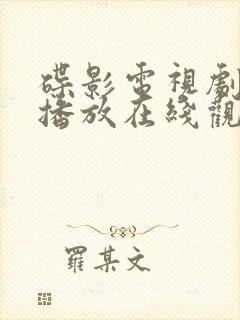 碟影電視劇
播放在綫觀
羅某文